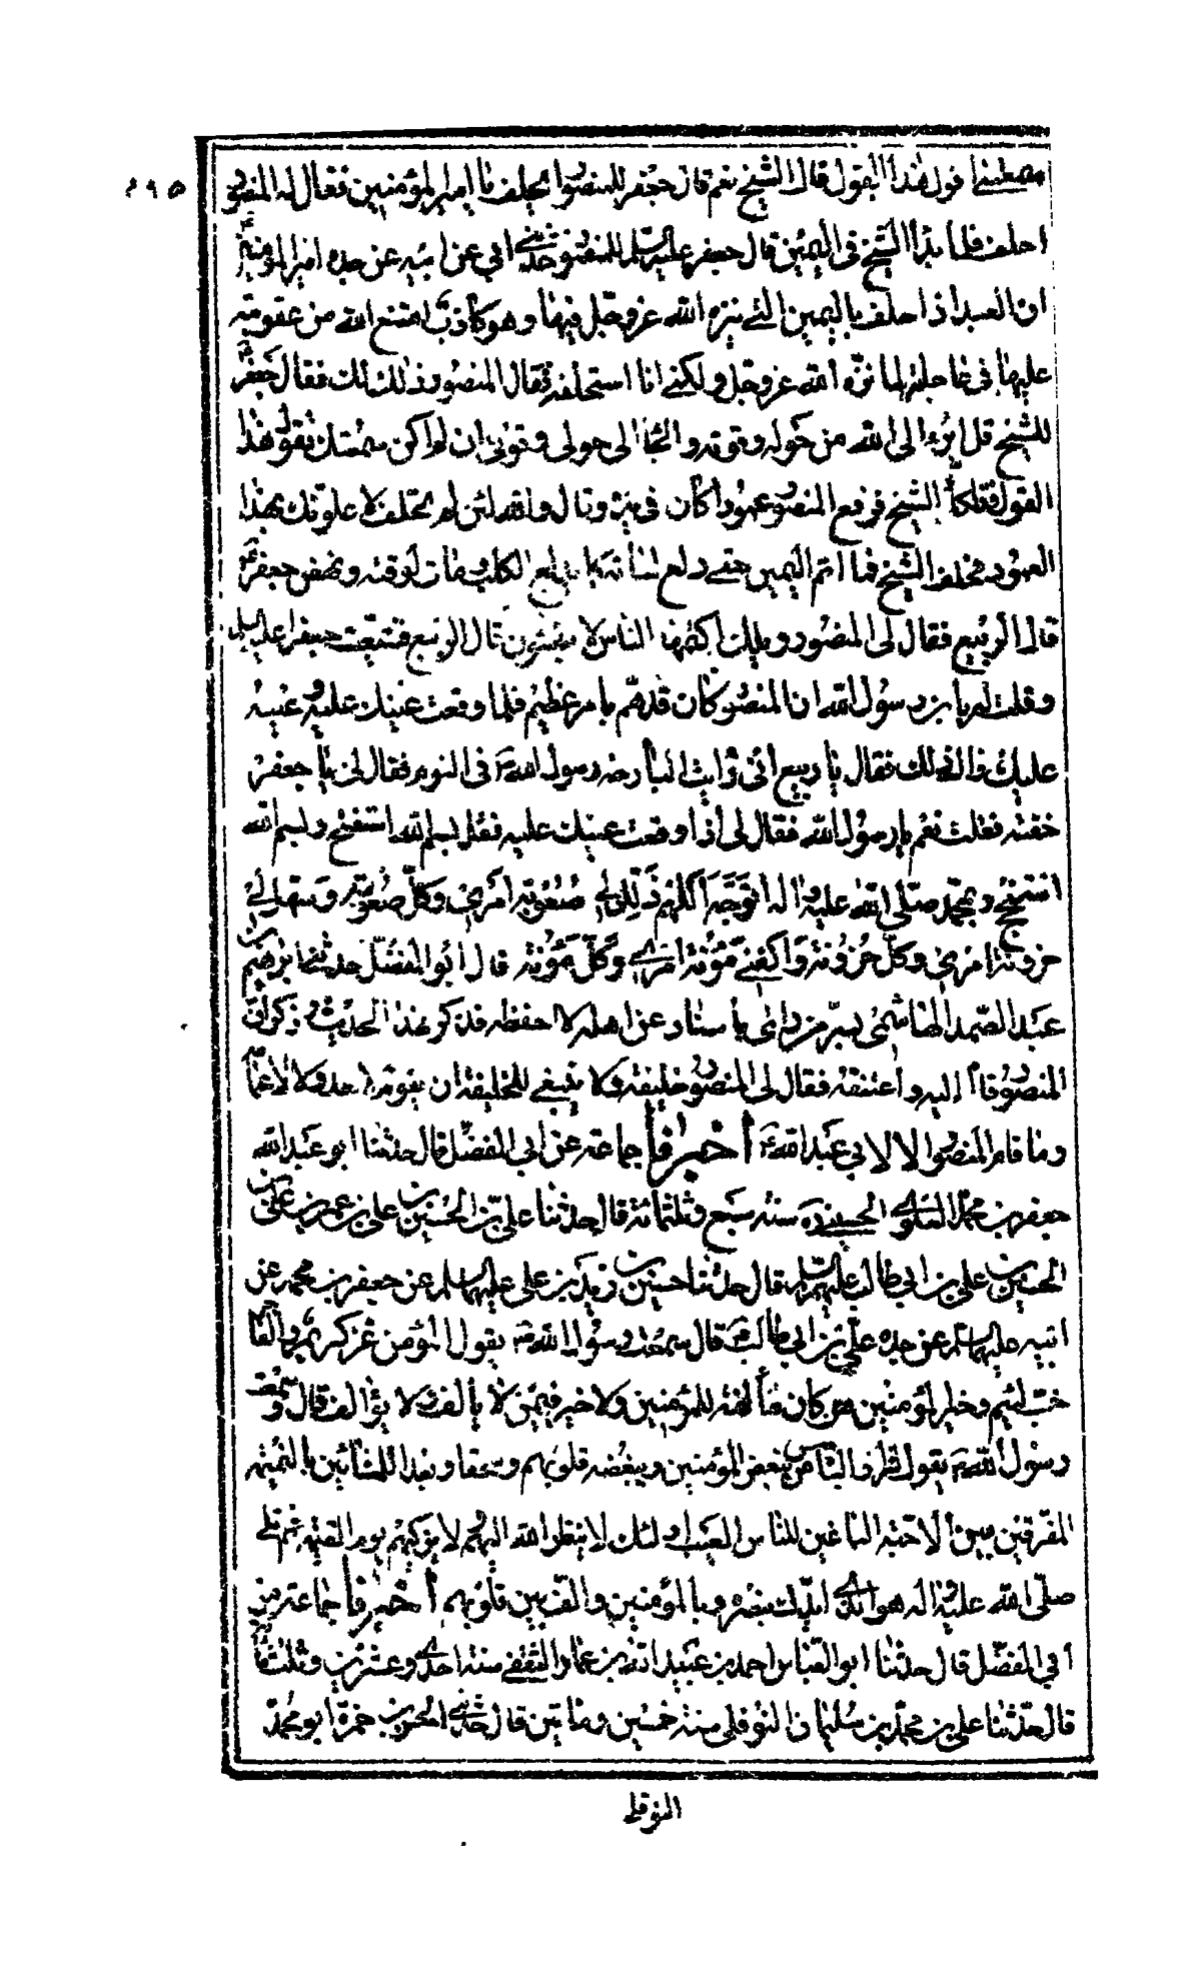 ٢٩٥
فول هذا القول قال الشيخ نعم قال جعفر للمنصور يحلف يا امير المؤمنين فقال له المنصور
احلف فلما بدأ الشيخ في اليمين قال جعفر عليه السلم للمنصور حدثني ابي عن ابيه عن جده امير المؤمنين
ان العبد اذا حلف باليمين التي ينزه الله عز وجل فيها وهو كاذب امتنع الله من عقوبته
عليها في عاجلته لما نزه الله عز وجل ولكني انا استحلفه فقال المنصور ذلك لك فقال جعفر
للشيخ قل ابرء الى الله من حوله وقوته والجأ الى حولي وقوتي ان لم اكن سمعتك تقول هذا
القول فتلكأ الشيخ فرفع المنصور عمودا كان في يده وقال والله لئن لم تحلف لاعلونك بهذا
العمود فحلف الشيخ فما اتم اليمين حتى دلع لسانه كما يدلع الكلب ومات لوقته ونهض جعفر
قال الربيع فقال لي المنصور ويلك اكتمها الناس لا يفتنون قال الربيع فشيعت جعفرا عليه السلم
وقلت له يا بن رسول الله ان المنصور كان قد هم بامر عظيم فلما وقعت عينك عليه وعينه
عليك زال ذلك فقال يا ربيع اني رايت البارحة رسول الله ص في النوم فقال لي يا جعفر
خفته فقلت نعم يا رسول الله فقال لي اذا وقعت عينك عليه فقل بسم الله استفتح وبسم الله
استنجح وبمحمد صلى الله عليه واله اتوجه اللهم ذلل لي صعوبة امري وكل صعوبة وسهل لي
حزونة امري وكل حزونة واكفني مؤنة امري وكل مؤنة قال ابو المفضل حدثنا ابرهيم بن
عبد الصمد الهاشمي بسر من راى باسناد عن اهله لا احفظه فذكر هذا الحديث وذكر ان
المنصور قام اليه واعتنقه فقال لي المنصور خليفة ولا ينبغي للخليفة ان يقوم الى احد ولا الى
وما قام المنصور الا لابي عبد الله ع أخبرنا جماعة عن ابي المفضل قال حدثنا ابو عبد الله
جعفر بن محمد العلوي الحسيني ره سنة سبع وثلثمائة قال حدثنا علي بن الحسين بن علي بن عمر بن علي بن
الحسين بن علي بن ابي طالب عليهم السلم قال حدثنا حسين بن زيد بن علي عليهم السلم عن جعفر بن محمد عن
ابيه عليهما السلم عن جده علي بن ابي طالب ع قال سمعت رسول الله ص يقول المؤمن غر كريم والفاجر
خب لئيم وخير المؤمنين من كان مألفة للمؤمنين ولا خير فيمن لا يألف ولا يؤالف قال وسمعت
رسول الله ص يقول شرار الناس من يبغض المؤمنين ويبغضه قلوبهم وسحقا وبعدا للمشائين بالنميمة
المفرقين بين الاحبة الباغين للناس العيب اولئك لا ينظر الله اليهم ولا يزكيهم يوم القيمة ثم تلى
صلى الله عليه واله هو الذي ايدك بنصره وبالمؤمنين والف بين قلوبهم أخبرنا جماعة عن
ابي المفضل قال حدثنا ابو العباس احمد بن عبيد الله بن عمار الثقفي سنة احدى وعشرين وثلثمائة
قال حدثنا علي بن محمد بن سليمان النوفلي سنة خمسين ومائتين قال حدثني الحسن بن حمزة ابو محمد
النوفلي